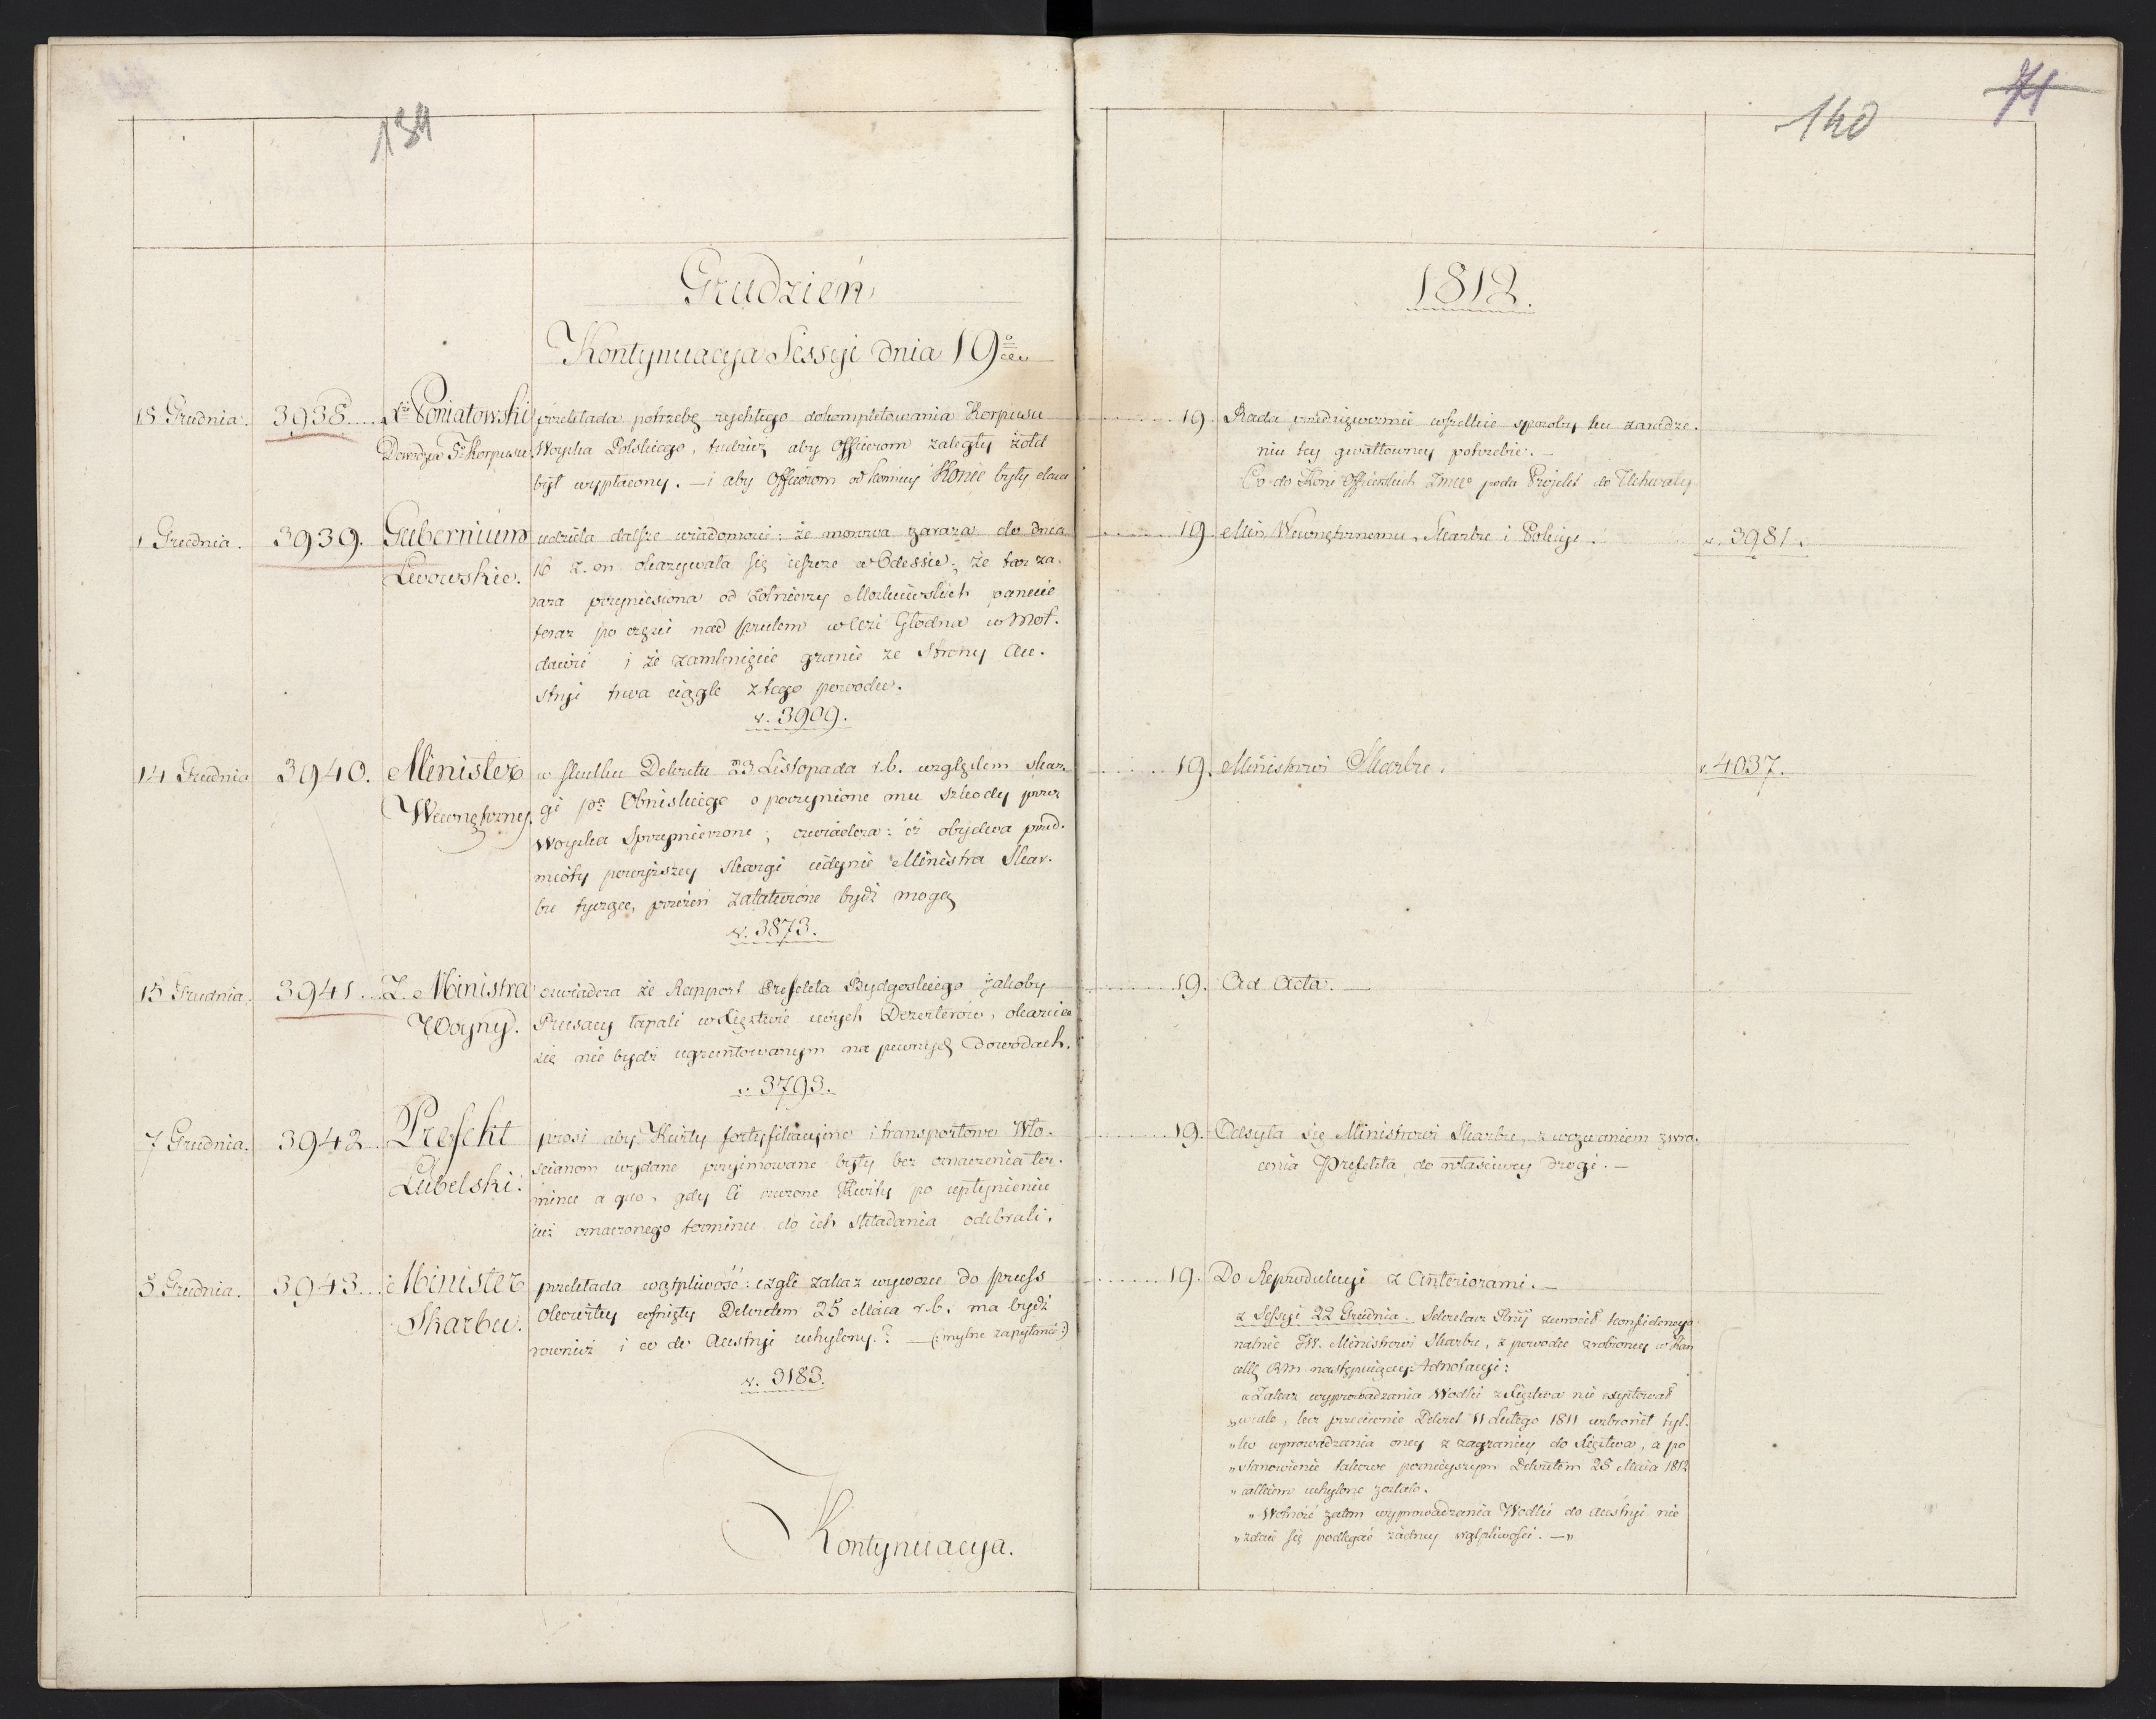 139
Grudzień
Kontynuacya Sessyi dnia 19º
18 Grudnia. 3938. Xże Poniatowski przekłada potrzebę rychłego dokompletowania Korpusu
Dowódzca 5º Korpusu. Woyska Polskiego, tudzież aby Officerom zaległy żołd
był wypłacony. — i aby Officerom od konnicy Konie były dane
1 Grudnia. 3939. Gubernium udziela dalsze wiadomości: że morowa zaraza do dnia
Lwowskie. 16 z. m. okazywała się ieszcze w Odessie; że taż za-
raza przyniesiona od Żołnierzy Moskiewskich panuie
teraz po części nad Prutem w Głodna w Moł-
dawii i że zamknięcie granic ze Strony Au-
stryi trwa ciągle z tego powodu.
v. 3909.
14 Grudnia 3940. Minister w skutku Dekretu 23 Listopada r.b. względem skar-
Wewnętrzny. gi pº Obniskiego o poczynione mu szkody przez
Woyska Sprzymierzone; oświadcza: iż obydwa przed-
mioty powyższey skargi iedynie Ministra Skar-
bu tyczące, przezeń załatwione bydź mogą
v. 3873.
15 Grudnia. 3941. Z. Ministra oświadcza że Rapport Prefekta Bydgoskiego jakoby
Woyny. Prusacy łapali w Xięstwie swych Dezerterów, okazuie
się nie bydź ugruntowanym na pewnych Dowodach.
v. 3793.
7 Grudnia. 3942. Prefekt prosi aby Kwity fortyfikacyine i transportowe Wło-
Lubelski. ścianom wydane przyimowane były bez oznaczenia ter-
minu a quo, gdy ci rzeczone Kwity po upłynieniu
iuż oznaczonego terminu do ich składania odebrali.
5 Grudnia. 3943. Minister przekłada wątpliwość: czyli zakaz wywozu do Pruss
Skarbu. Okowitey cofnięty Dekretem 25 Maia r.b. ma bydź
również i co do Austryi uchylony? — (: mylne zapytanie :)
v. 3183.
Kontynuacya.
140
71
1812.
19. Rada przedsięweźmie wszelkie sposoby ku zaradze-
niu tey gwałtowney potrzebie. —
Co do Koni Officerskich poda Proiekt do Uchwały
19. Min. Wewnętrznemu, Skarbu i Policyi. v. 3981.
19. Ministrowi Skarbu. v. 4037.
19. Ad Acta. —
19. Odsyła się Ministrowi Skarbu, z wezwaniem zwró-
cenia Prefekta do właściwey drogi. —
19. Do Reprodukcyi z Anteriorami. —
z Sessyi 22 Grudnia. Sekretarz zwrócił konfidency
nalnie JW. Ministrowi Skarbu, z powodu zrobioney w Kan
cellę RM. następuiącey Adnotacyi:
„ Zakaz wyprowadzania Wódki z Xięstwa nie exystował
„ wcale, lecz przeciwnie Dekret 11 Lutego 1811 wzbronił tyl-
„ ko wprowadzania oney z zagranicy do Xięstwa, a po
„ stanowienie takowe poznieyszym Dekretem 25 Maia 1812
„ całkiem uchylone zostało.
„ Wolność zatem wyprowadzania Wódki do Austryi nie
„ zdaie się podlegać żadney wątpliwości. —„